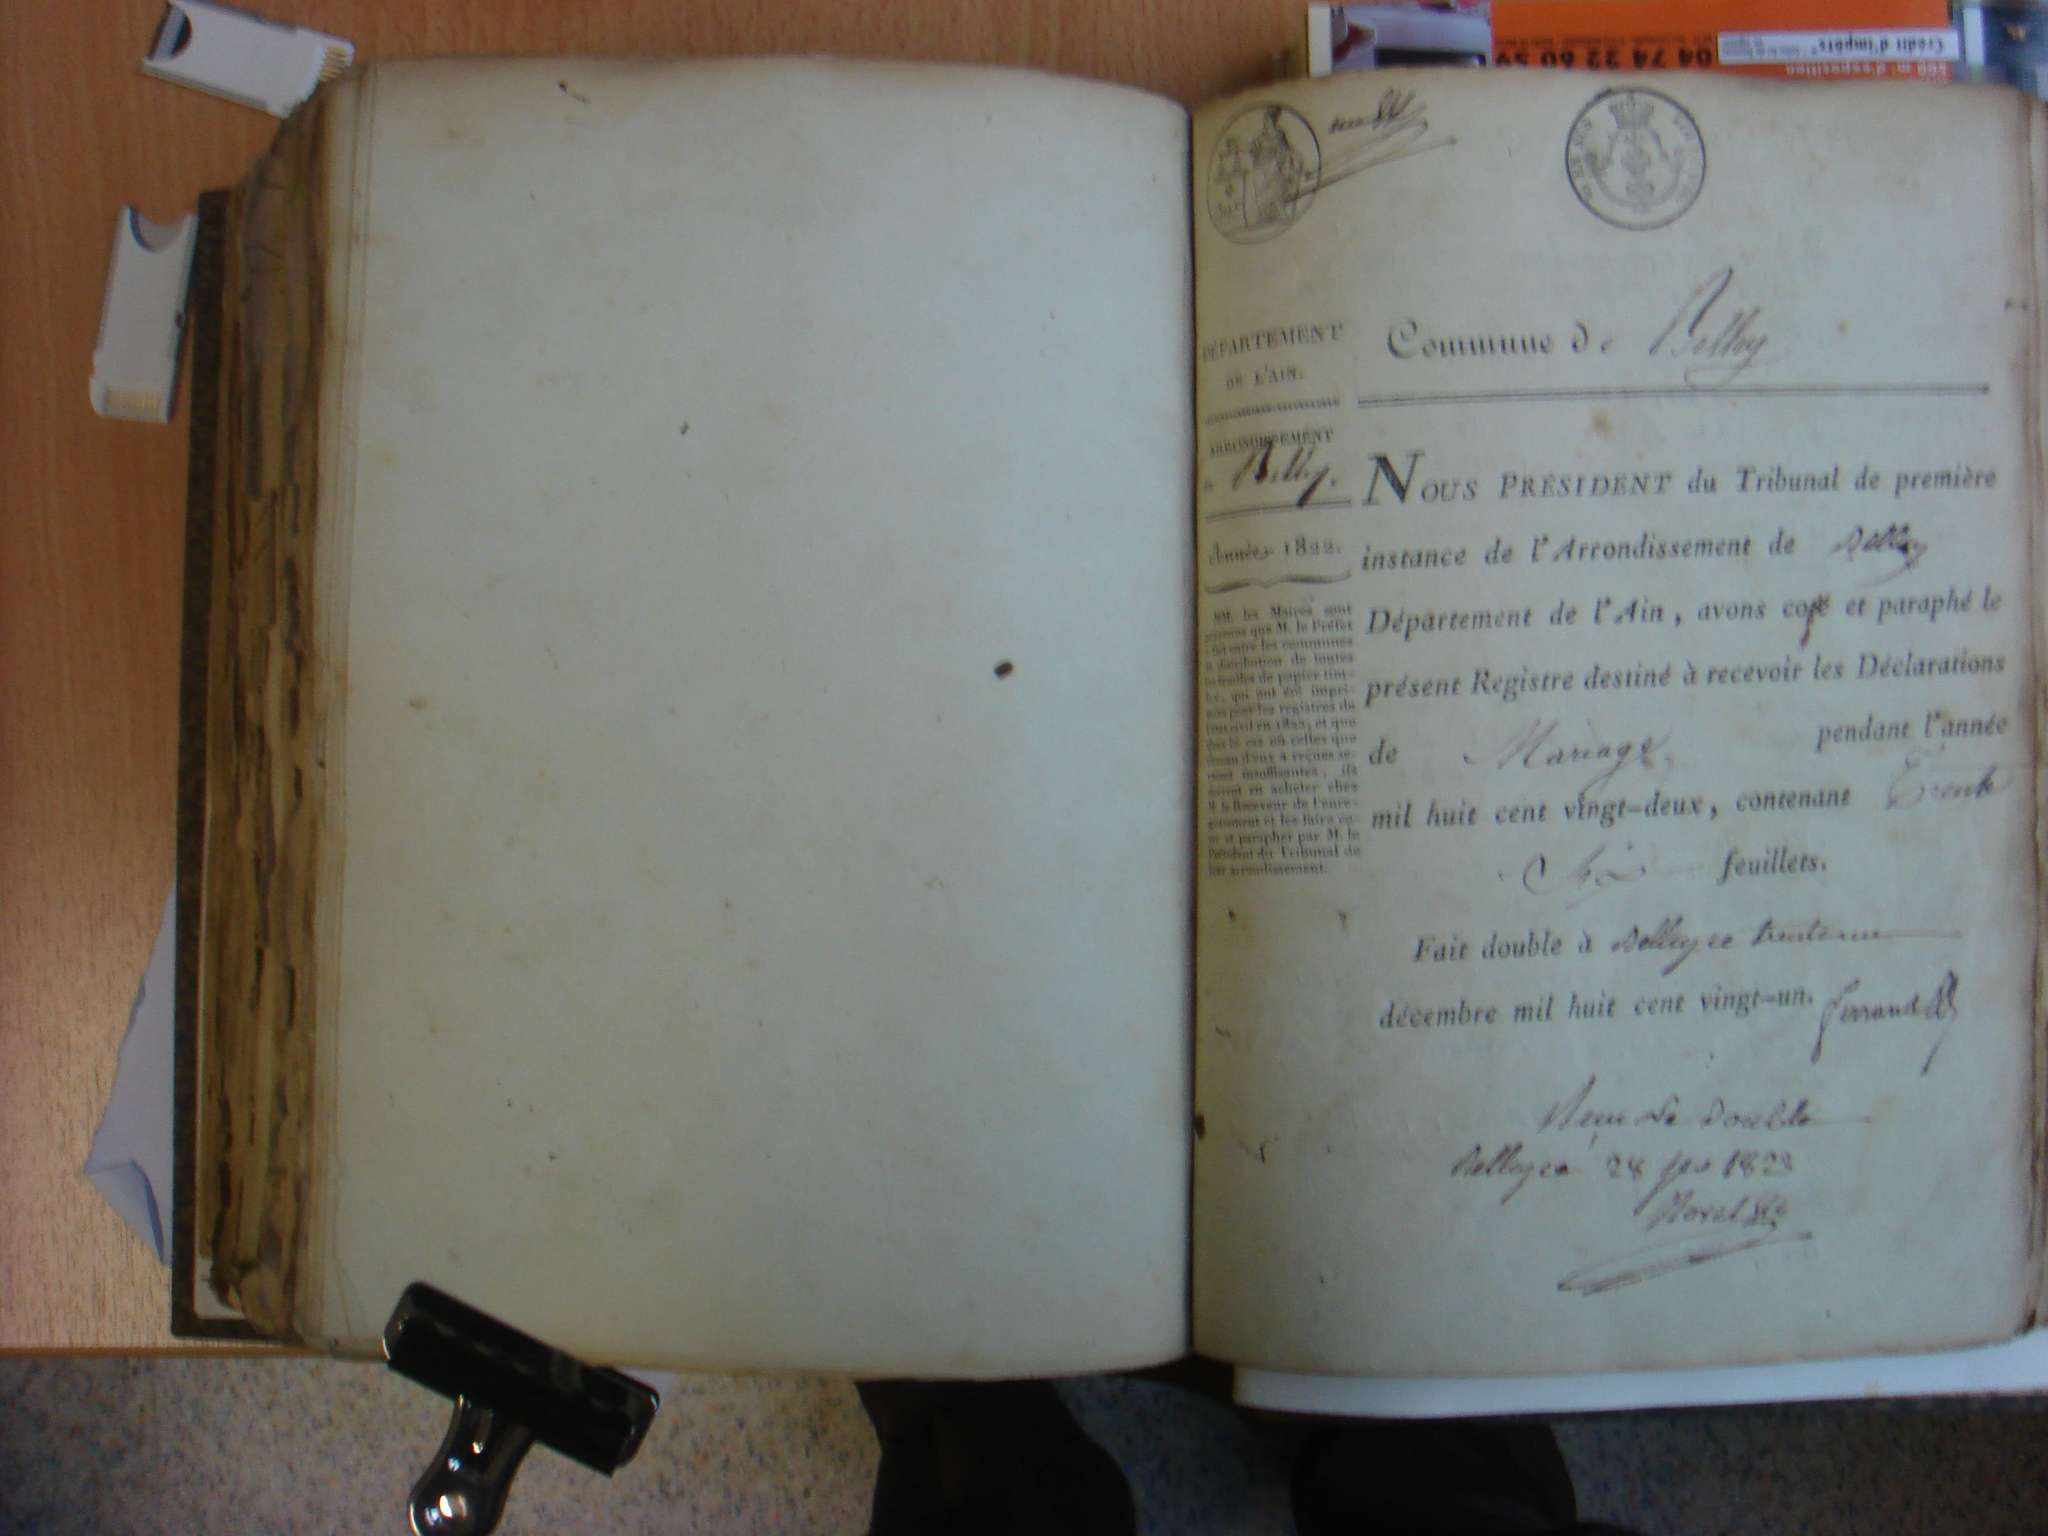 Crédit d'impôts
04 74 22 60 59
d'exposition
Commune de Belley
DÉPARTEMENT
DE L'AIN.
ARRONDISSEMENT
de Belley.
Année 1822.
MM. les Maires sont
prévenus que M. le Préfet
a fait entre les communes
la distribution de toutes
les feuilles de papier tim-
bré, qui ont été impri-
mées pour les registres de
l'état civil en 1822, et que
dans le cas où celles que
chacun d'eux a reçues se-
raient insuffisantes, ils
devront en acheter chez
M. le Receveur de l'enre-
gistrement et les faire co-
ter et parapher par M. le
Président du Tribunal de
leur arrondissement.
NOUS PRÉSIDENT du Tribunal de première
instance de l'Arrondissement de Belley
Département de l'Ain, avons coté et paraphé le
présent Registre destiné à recevoir les Déclarations
de Mariage, pendant l'année
mil huit cent vingt-deux, contenant Trente
Six feuillets.
Fait double à Belley ce trente un
décembre mil huit cent vingt-un. Ferrand
Vu le Double
Belley ce 28 1823